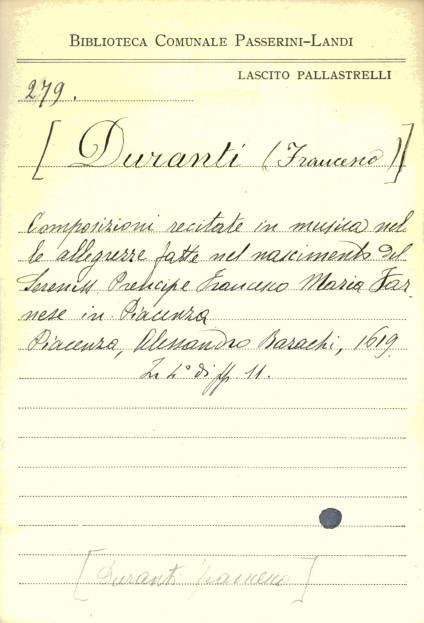 BIBLIOTECA COMUNALE PASSERINI-LANDI
LASCITO PALLASTRELLI
279.
[Duranti (Francesco)]
Composizioni recitate in musica nel
le allegrezze fatte nel nascimento del
Sereniss. Prencipe Francesco Maria Far-
nese in Piacenza
Piacenza, Alessandro Bazachi, 1619
In 4° di ff 11.
[Duranti Francesco]